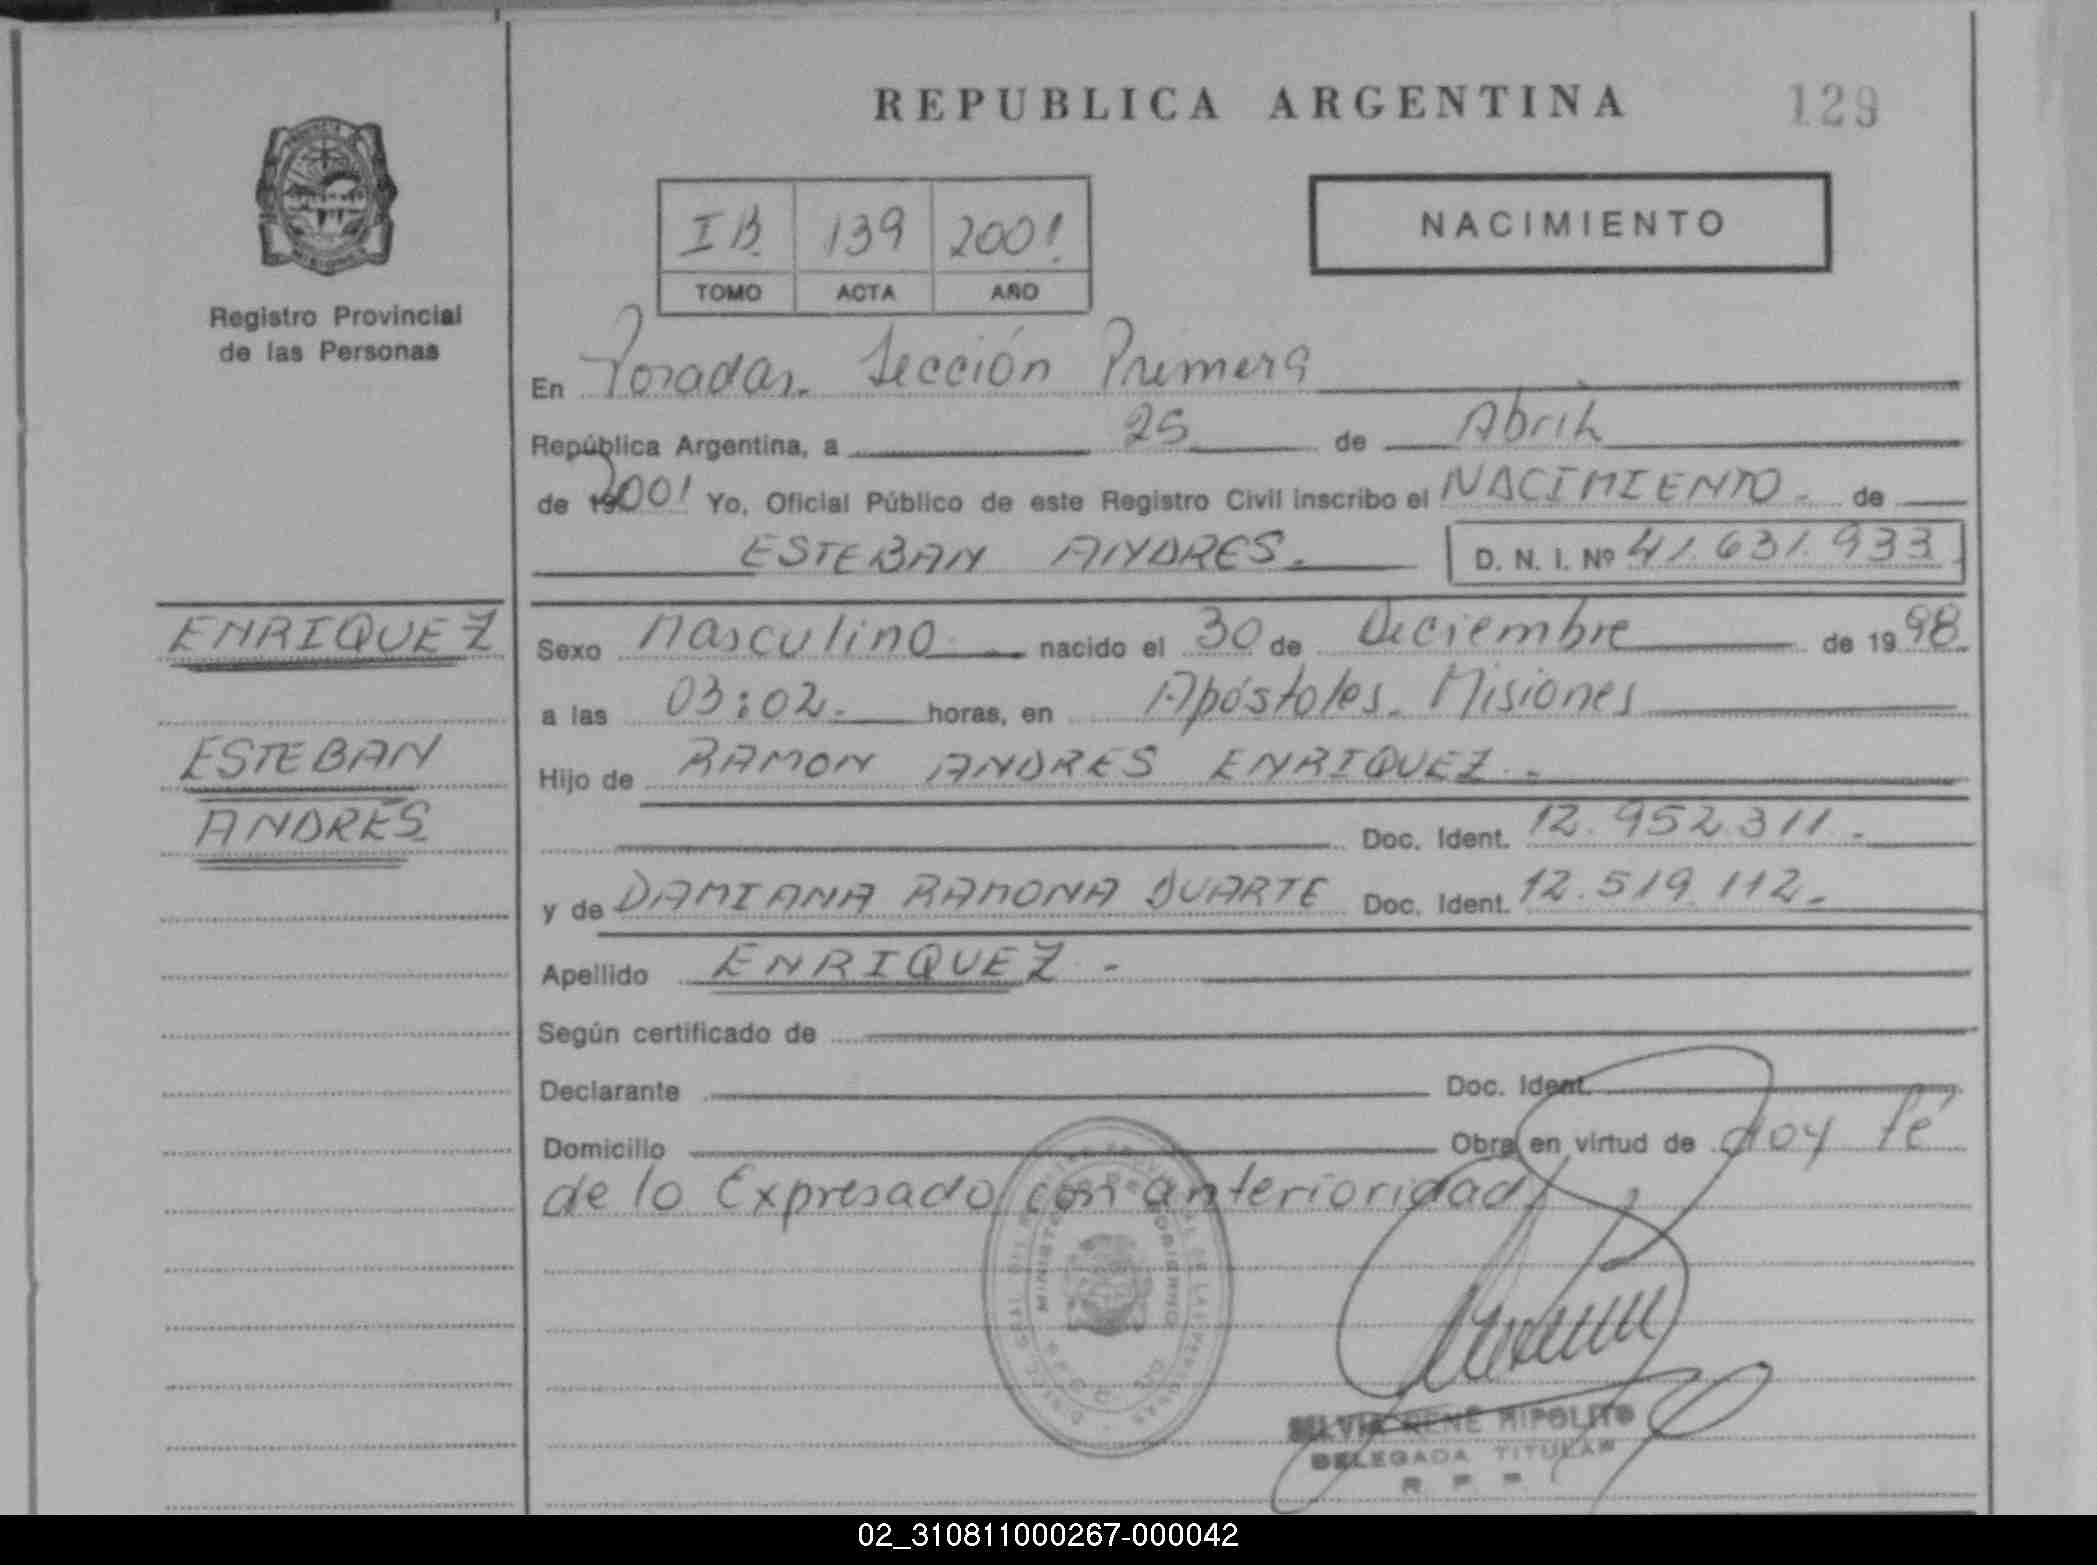 REPUBLICA ARGENTINA 129
NACIMIENTO
I B. 139 2001
TOMO ACTA AÑO
Registro Provincial
de las Personas
En Posadas. Sección Primera
República Argentina, a 25 de Abril
de 2001 Yo, Oficial Público de este Registro Civil inscribo el NACIMIENTO. de
ESTEBAN ANDRES. D. N. I. Nº 41.631.933
ENRIQUEZ
Sexo Masculino nacido el 30 de Diciembre de 1998.
a las 03:02. horas, en Apóstoles. Misiones
ESTEBAN
Hijo de RAMON ANDRES ENRIQUEZ.
ANDRES
Doc. Ident. 12.952.311.
y de DAMIANA RAMONA DUARTE Doc. Ident. 12.519.112.
Apellido ENRIQUEZ.
Según certificado de
Declarante Doc. Ident.
Domicilio Obra en virtud de doy fé
de lo Expresado con anterioridad
SILVIA RENE HIPOLITO
DELEGADA TITULAR
R. P. P.
02_310811000267-000042